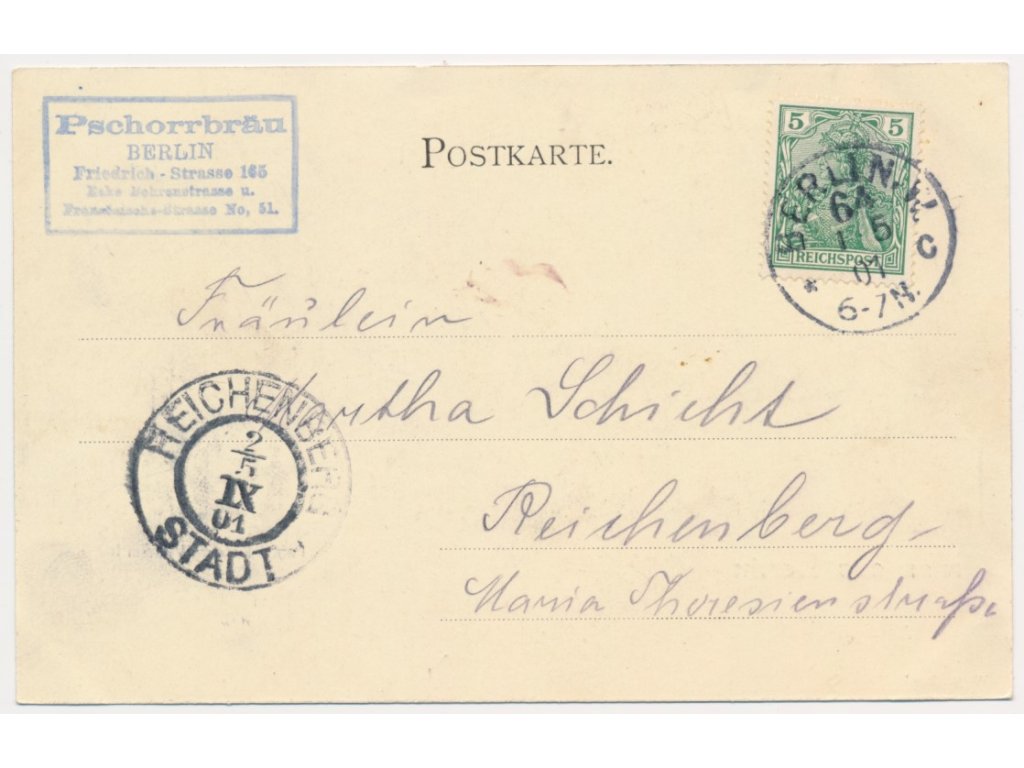 Pschorrbräu
BERLIN
Friedrich - Strasse 165
Ecke Behrenstrasse u.
Französische-Strasse No, 51.
POSTKARTE.
5 5
REICHSPOST
BERLIN.W
64
1 5
01
* C
6-7N.
Fräulein
Martha Schicht
Reichenberg
Maria Theresienstraße
REICHENBERG
2/5
IX
01
STADT